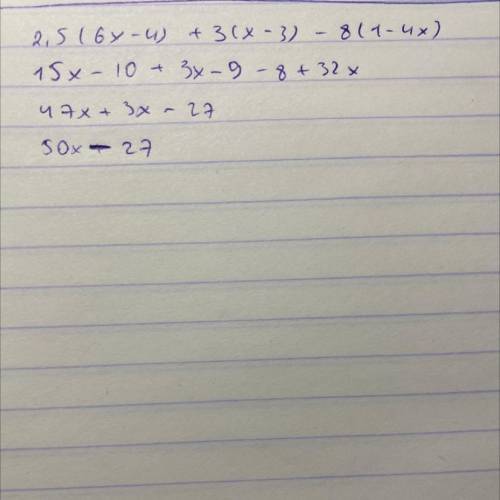 2,5(6x-4) + 3(x-3) - 8(1-4x)
15x - 10 + 3x - 9 - 8 + 32x
47x + 3x - 27
50x - 27